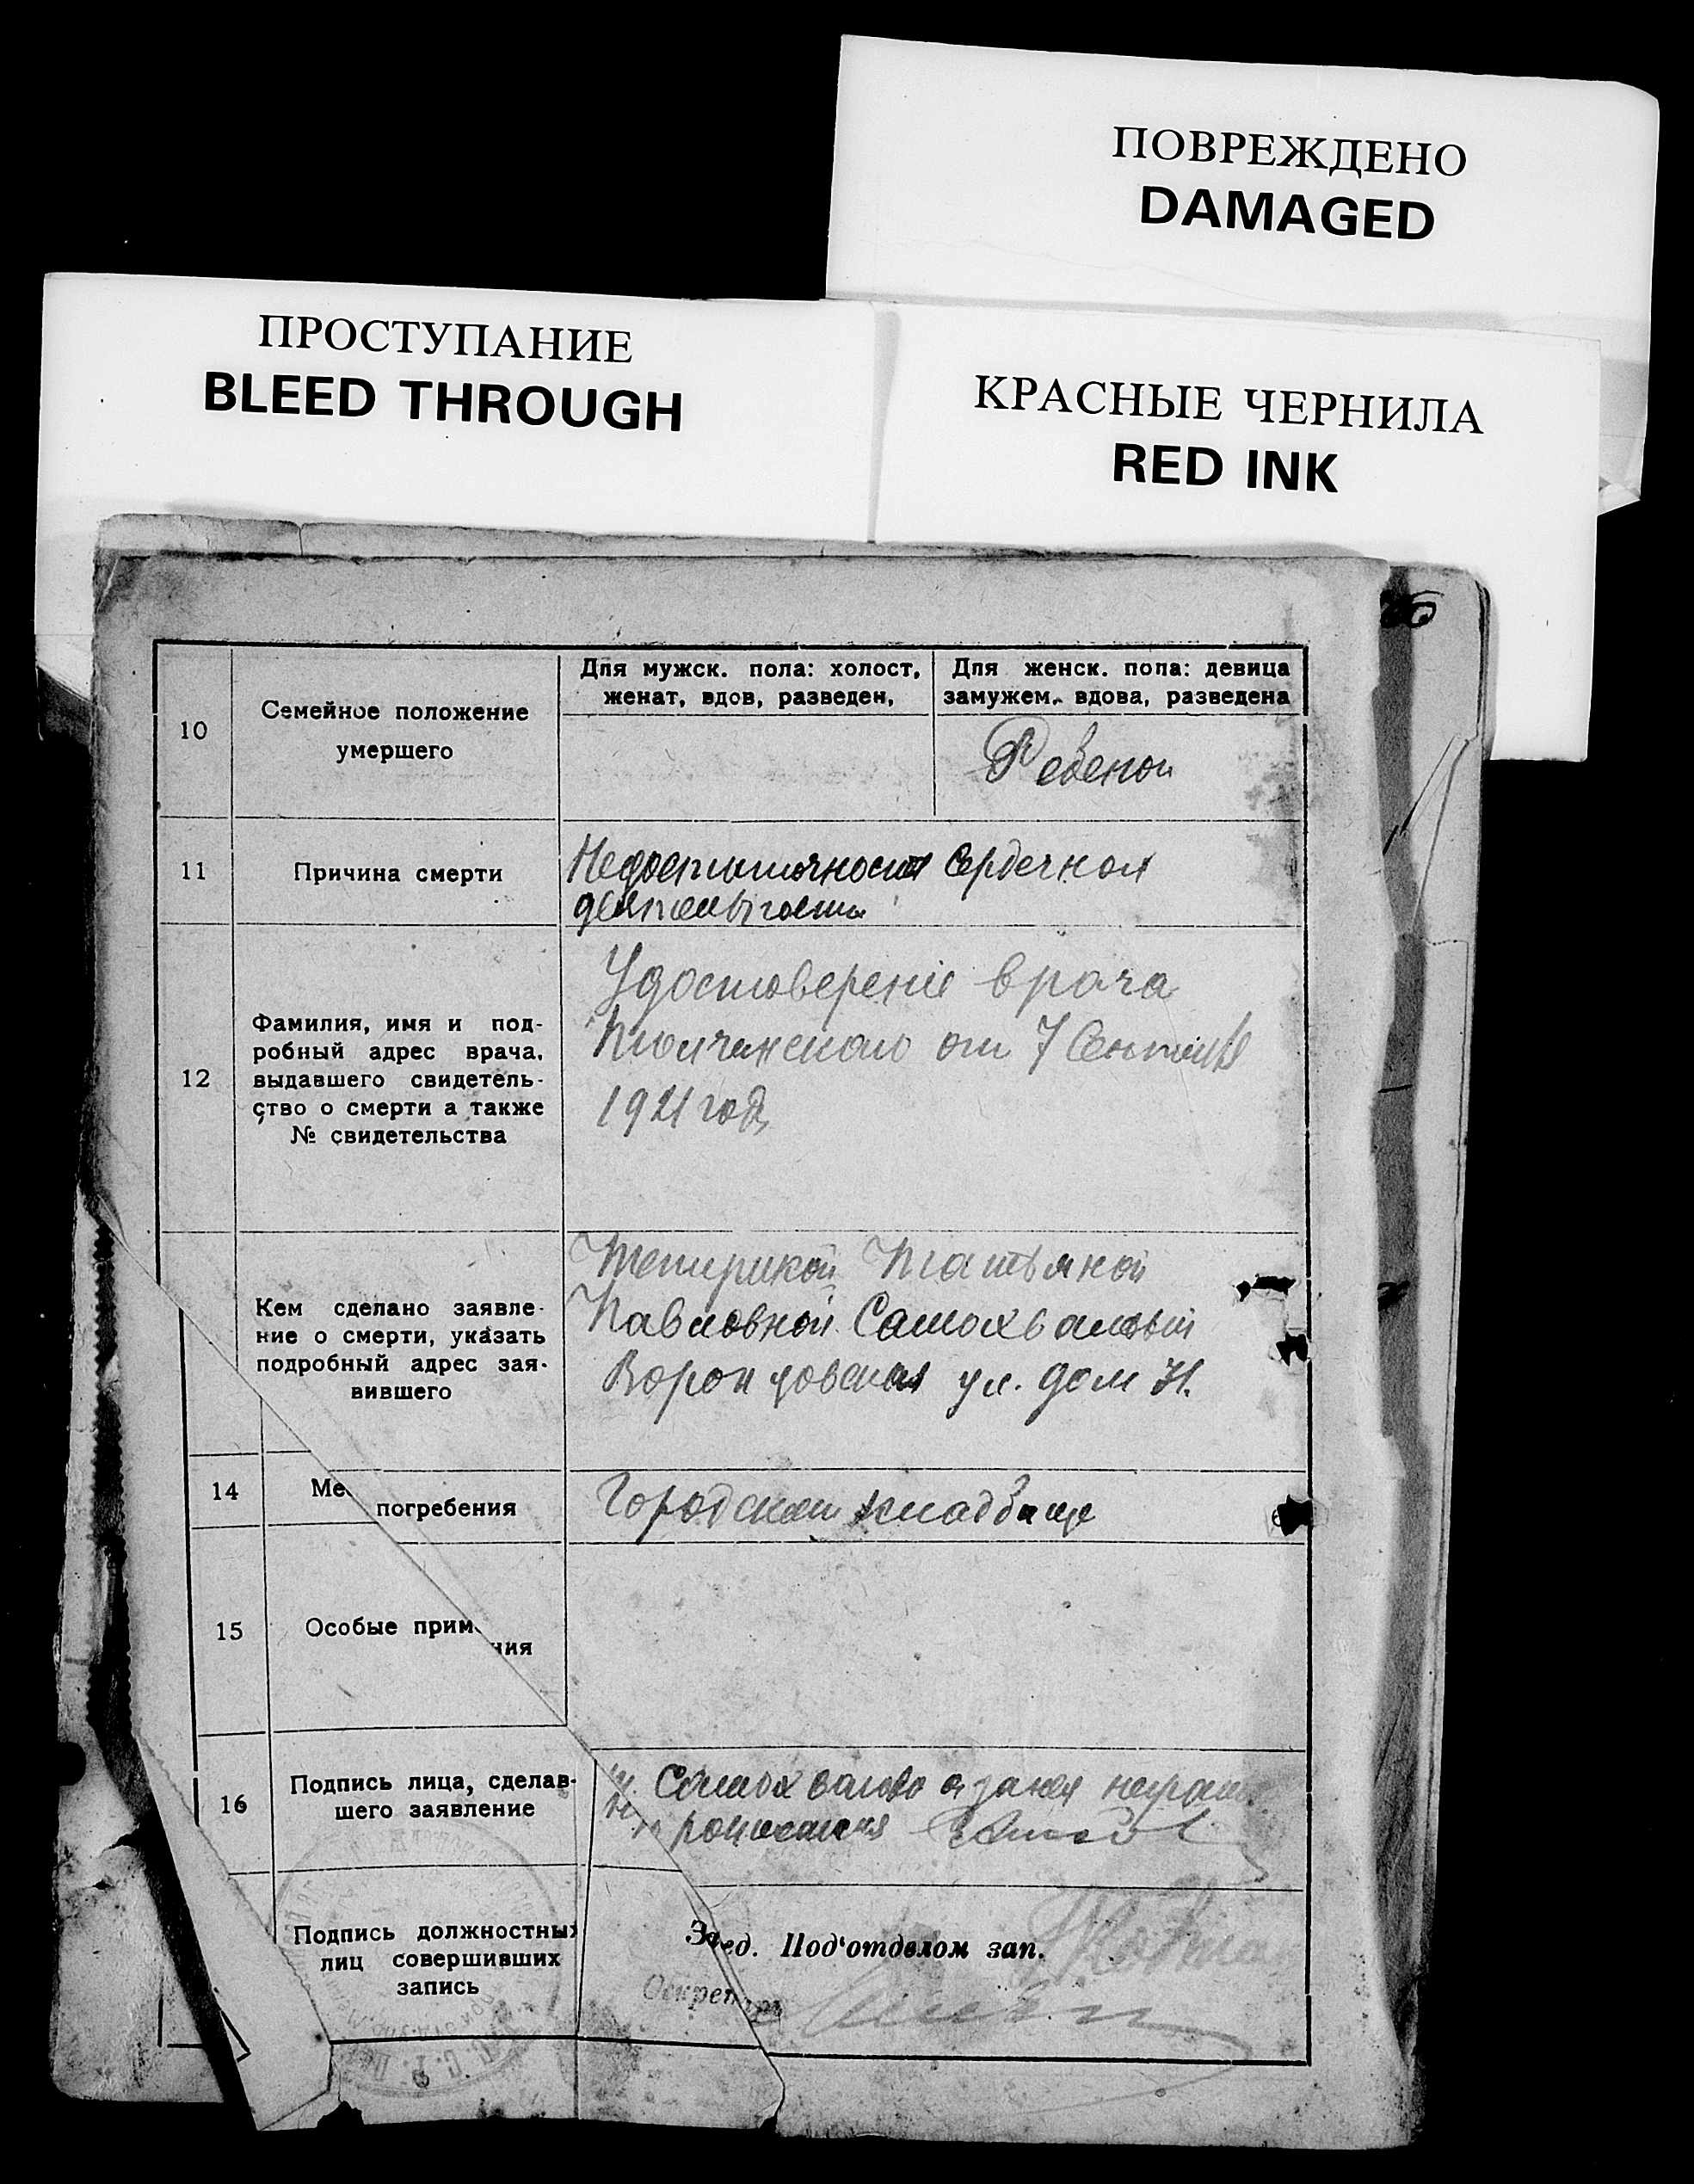 ПОВРЕЖДЕНО
DAMAGED
ПРОСТУПАНИЕ
BLEED THROUGH
КРАСНЫЕ ЧЕРНИЛА
RED INK
10
Семейное положение
умершего
Для мужск. пола: холост,
женат, вдов, разведен,
Для женск. пола: девица
замужем, вдова, разведена
Ребенок
11
Причина смерти
Недостаточность сердечной
деятельности
12
Фамилия, имя и под-
робный адрес врача,
выдавшего свидетель-
ство о смерти а также
№ свидетельства
Удостоверение врача
от 7 Сентября
1921 года
Кем сделано заявле-
ние о смерти, указать
подробный адрес зая-
вившего
Татьяной
Павловной Самохваловой
Воронцовская ул. дом 71.
14
Ме погребения
Городском кладбище
15
Особые прим ния
16
Подпись лица, сделав-
шего заявление
Самохвалова а за нея неграмот
росписался
Подпись должностных
лиц совершивших
запись
Зав ед. Под'отделом зап.
Секретарь